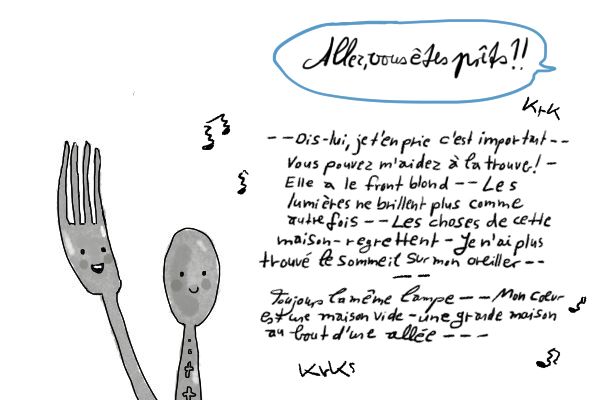 Allez, vous êtes prîts!!
KrK
-- Dis-lui, je t'en prie c'est important --
Vous pouvez m'aidez à la trouve! -
Elle a le front blond -- Les
lumières ne brillent plus comme
autre fois -- Les choses de cette
maison - regrettent - Je n'ai plus
trouvé le sommeil sur mon oreiller --
--
Toujours la même lampe -- Mon cœur
est une maison vide - une grande maison
au bout d'une allée ---
KrKs